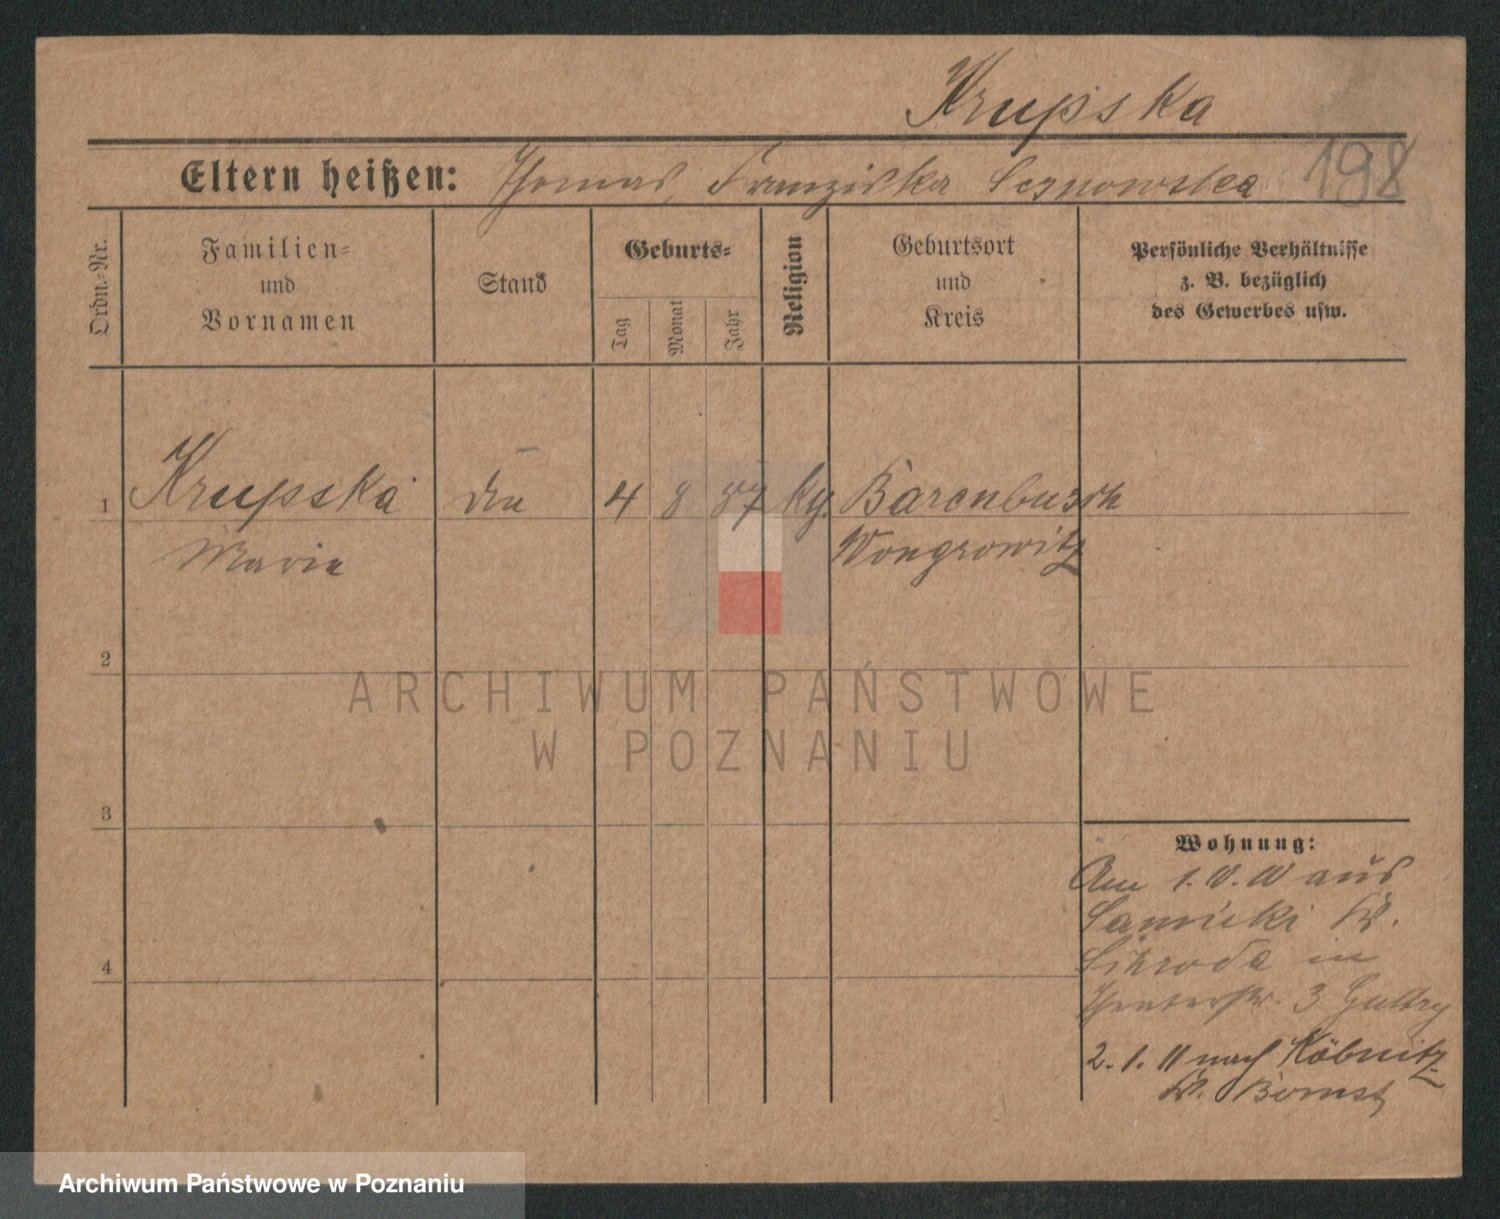 Krupska
198
Eltern heißen: Thomas, Franziska
Ordn.-Nr.
Familien-
und
Vornamen
Stand
Geburts-
Tag
Monat
Jahr
Religion
Geburtsort
und
Kreis
Persönliche Verhältnisse
z. B. bezüglich
des Gewerbes usw.
1 Krupska 4 8 87 Bärenbusch
Marie Wongrowitz
2
3
4
Wohnung:
Am 1. aus
Kr.
in
3
2. 1. 11 nach Köbnitz
Kr. Bomst
ARCHIWUM PAŃSTWOWE
W POZNANIU
Archiwum Państwowe w Poznaniu